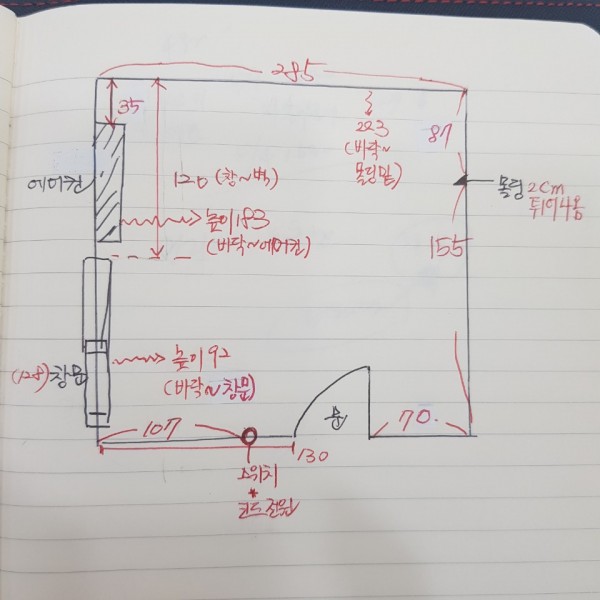 285
35
223
(바닥~
몰딩밑)
87
에어컨
120 (창~벽)
몰딩 2cm
튀어나옴
높이 183
(바닥~에어컨)
155
(128) 창문
높이 92
(바닥~창문)
107
문
70
130
스위치
코드전원